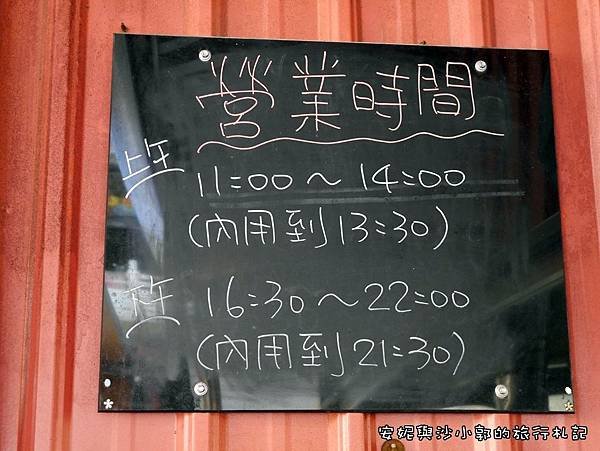 營業時間
上午 11:00～14:00
(內用到13:30)
下午 16:30～22:00
(內用到21:30)
安妮與沙小郭的旅行札記